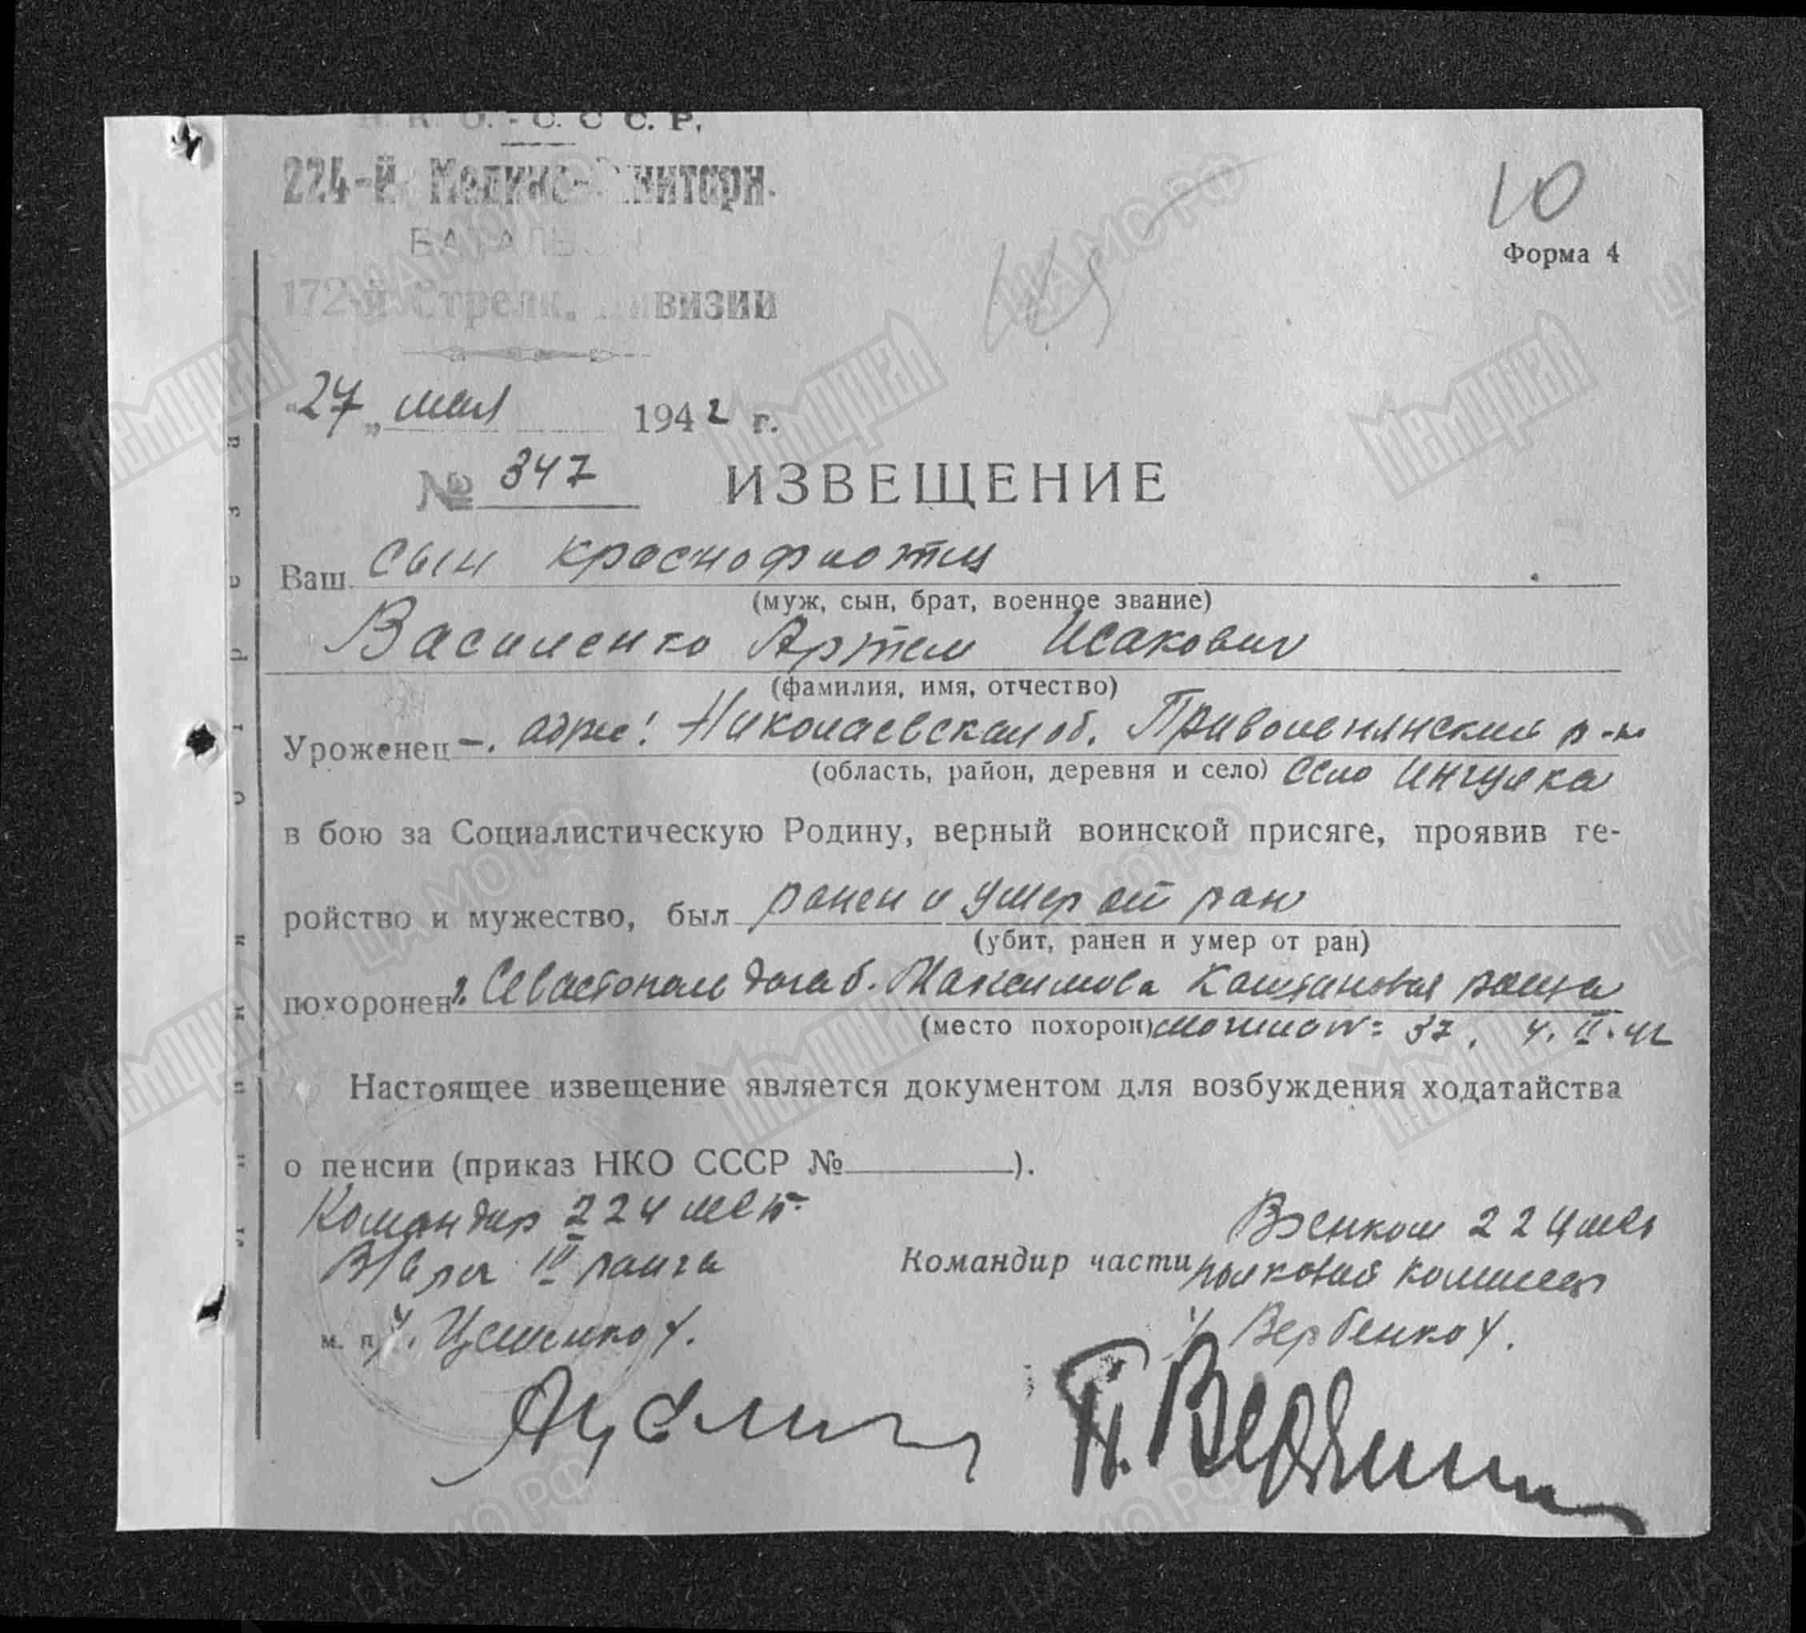 Н. К. О. - С. С С. Р.
224-й Медико-Санитарн.
БАТАЛЬОН
172-й Стрелк. Дивизии
10
Форма 4
"27" мая 1942 г.
№ 347 ИЗВЕЩЕНИЕ
Ваш сын краснофлотец
(муж, сын, брат, военное звание)
Василенко Артем Исакович
(фамилия, имя, отчество)
Уроженец -. адрес: Николаевская об. Привольнянский р-н
(область, район, деревня и село) село Ингулка
в бою за Социалистическую Родину, верный воинской присяге, проявив ге-
ройство и мужество, был ранен и умер от ран
(убит, ранен и умер от ран)
похоронен г. Севастополь Максимова Каштановая роща
(место похорон) могила №= 37. 4. II. 42
Настоящее извещение является документом для возбуждения ходатайства
о пенсии (приказ НКО СССР № ).
Командир 224 мсб
В/врач III ранга
Военком 224 мсб
Командир части полковой комиссар
м. п.
/ Вербенко /.
П. Вербенко
ЦАМО РФ
Мемориал